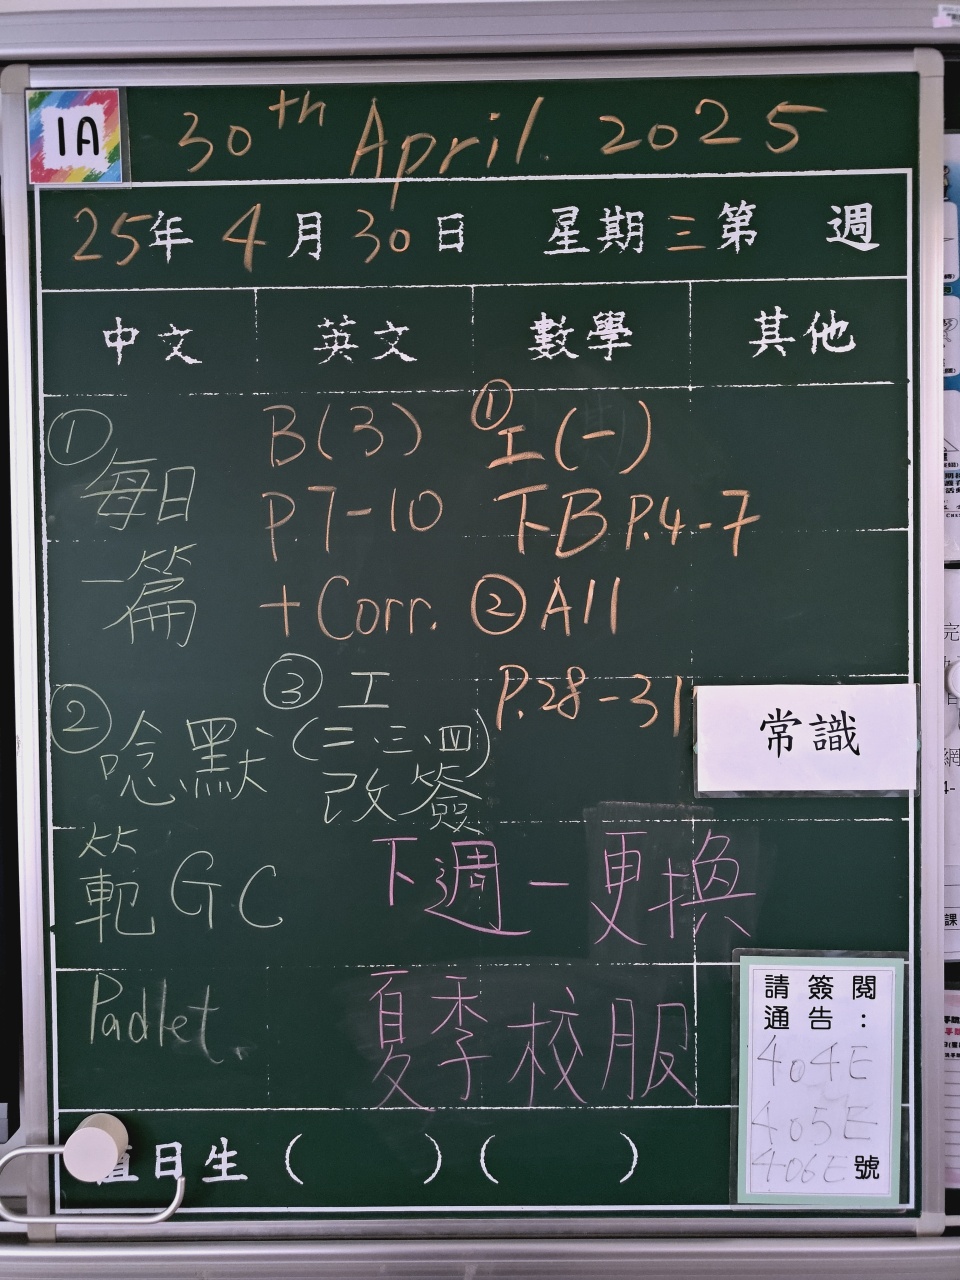 1A
30th April. 2025
25年4月30日 星期三第 週
中文 英文 數學 其他
① 每日
一篇
② 唸、默
範 GC
Padlet.
B(3)
P.7-10
+Corr.
③ 工
(二、三、四)
改簽
① 工(一)
下B P.4-7
② All
P.28-31
常識
下週一更換
夏季校服
請簽閱
通告：
404E
405E
406E號
值日生 ( ) ( )